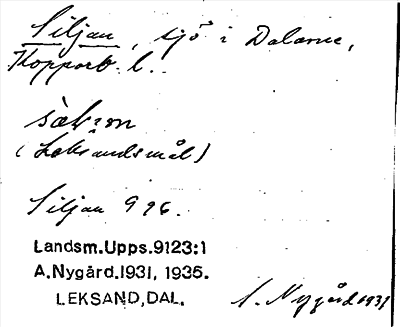 Siljan, sjö i Dalarne,
Kopparb. l.
(Leksandsmål)
Siljan 996.
Landsm.Upps.9123:1
A.Nygård.1931, 1935.
LEKSAND,DAL.
A. Nygård 1931